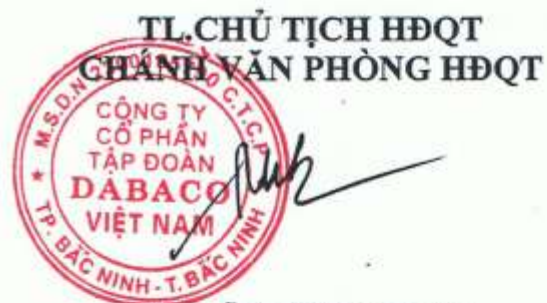 TL.CHỦ TỊCH HĐQT
CHÁNH VĂN PHÒNG HĐQT
CÔNG TY
CỔ PHẦN
TẬP ĐOÀN
DABACO
VIỆT NAM
TP. BẮC NINH - T. BẮC NINH